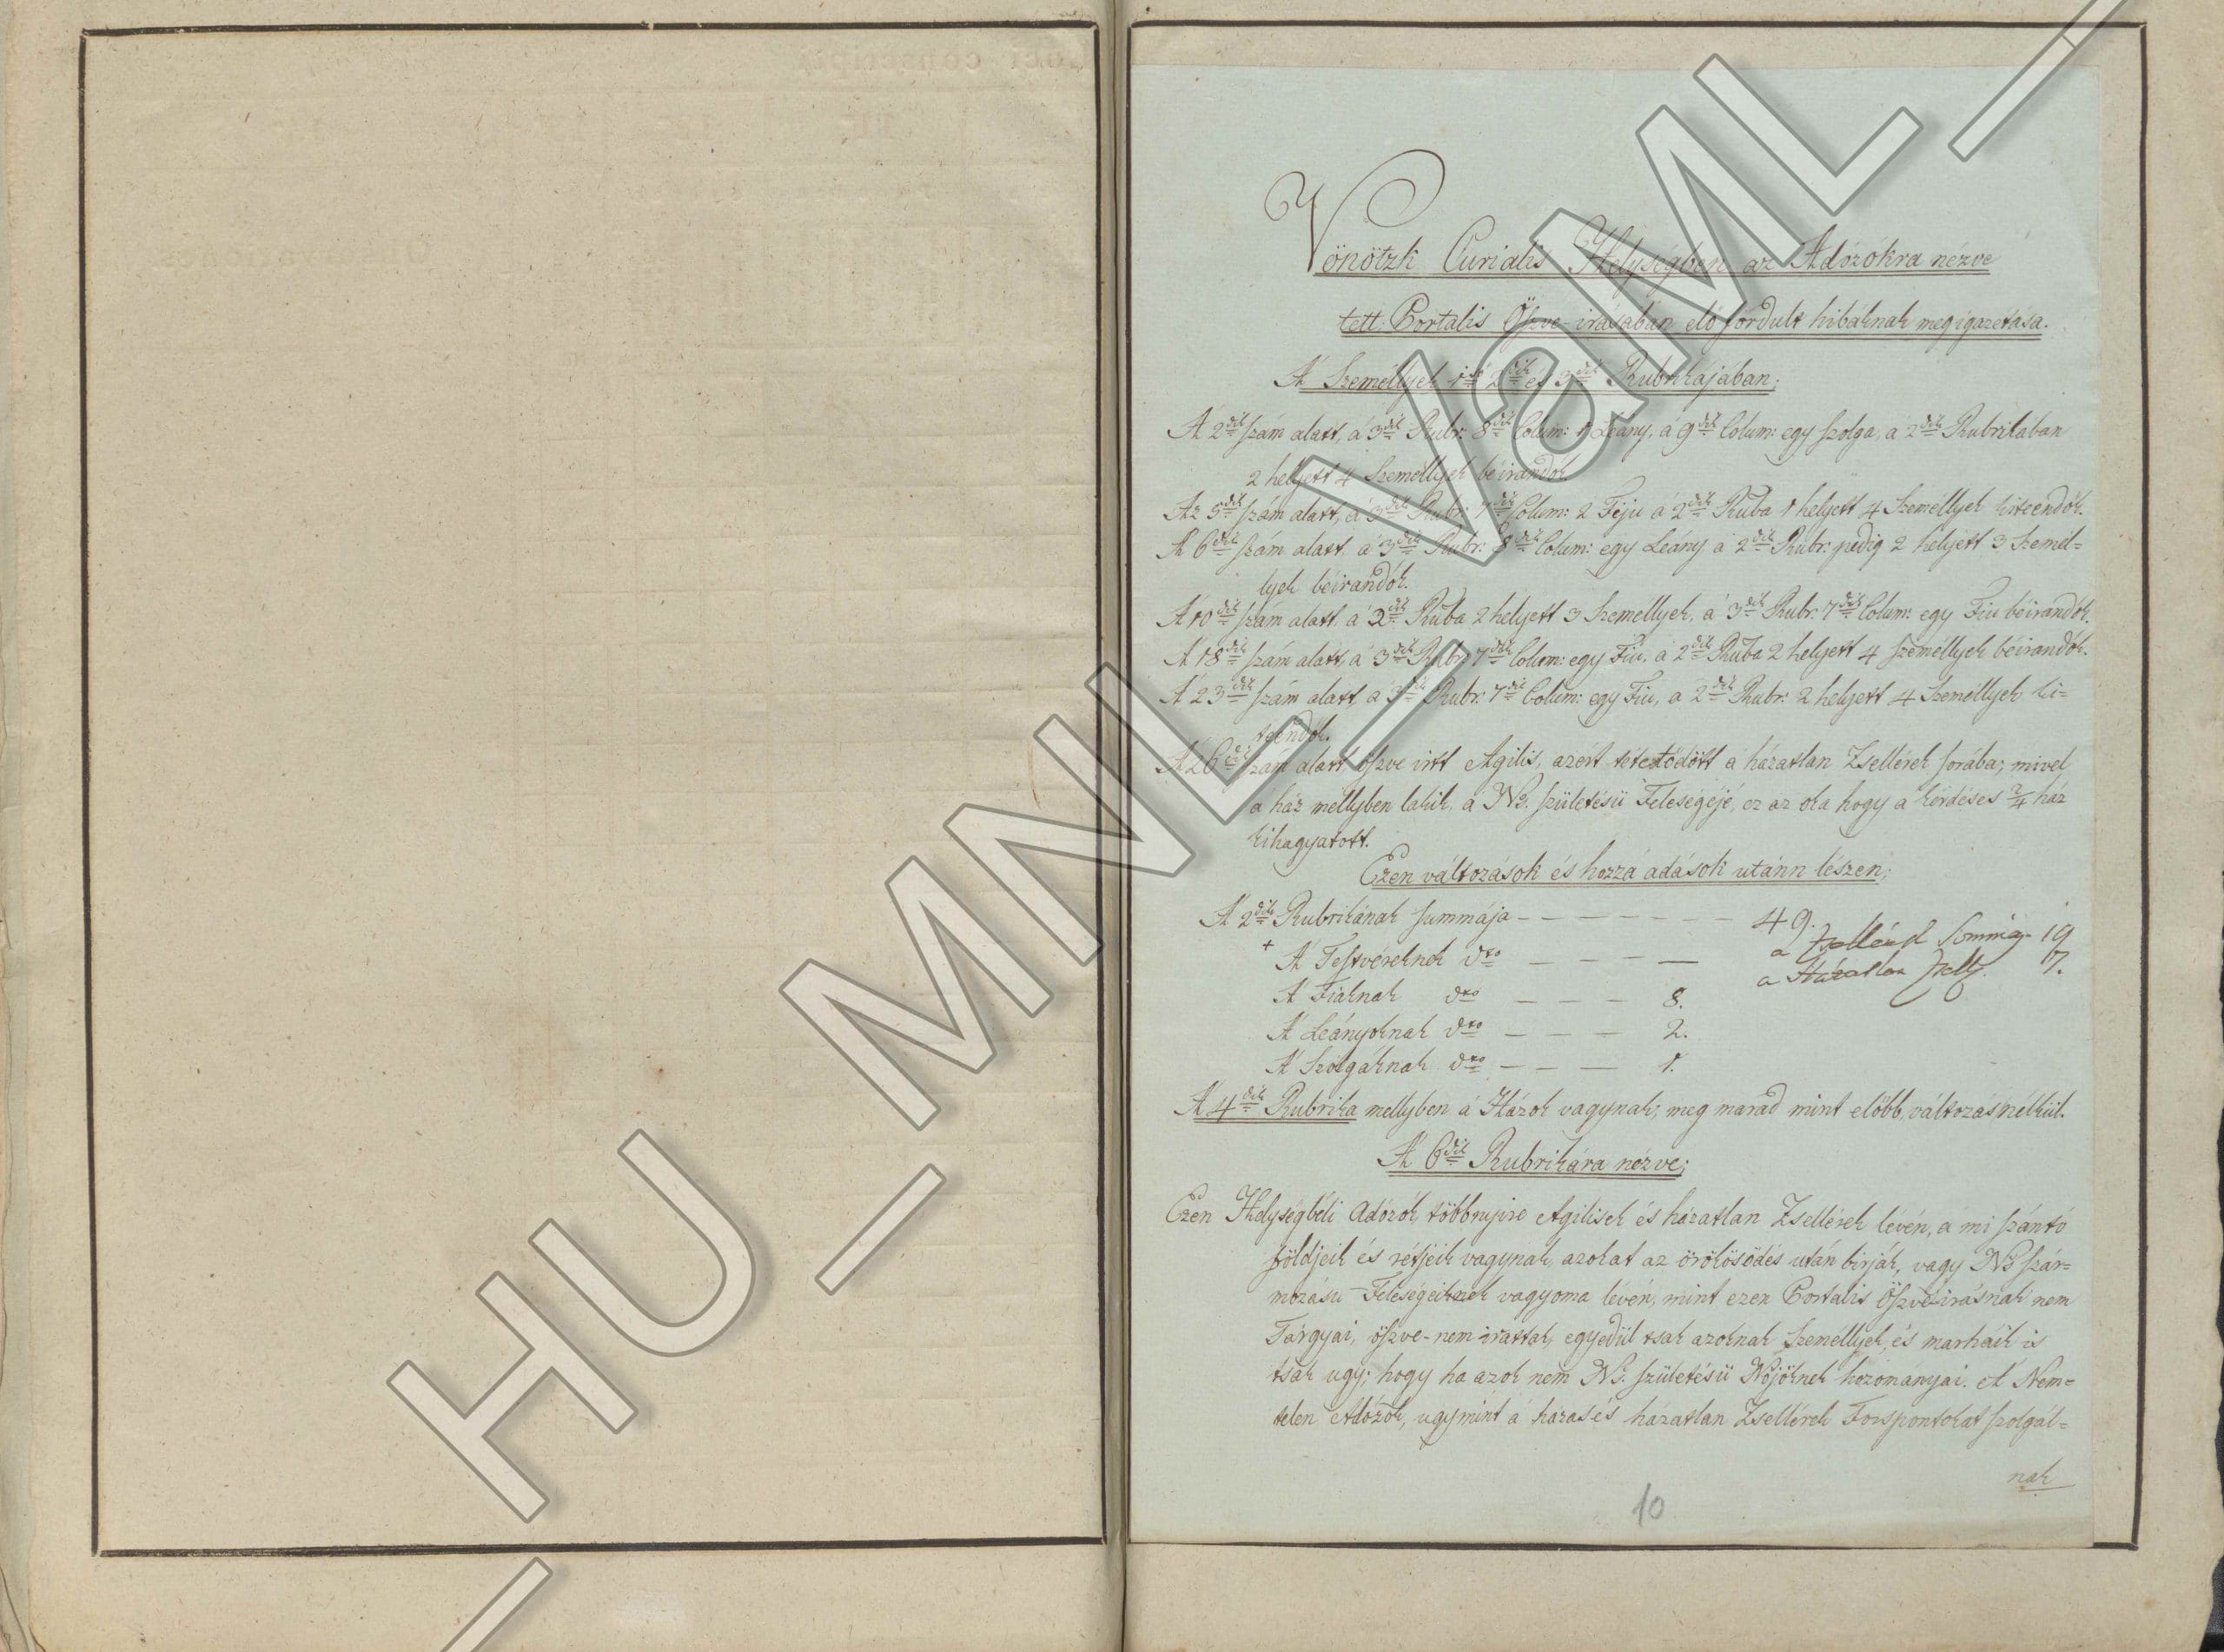 Vönötzk Curialis Helységben az Adózókra nézve
tett Portalis Öszve-irásában elő fordult hibáknak meg igazetása.
A' Személlyek 1ső 2dik és 3dik Rubrikájában;
A' 2dik szám alatt, a' 3dik Rubr: 8dik Colum: 1 Leány, a' 9dik Colum: egy szolga, a 2dik Rubrikában
2 helyett 4 Személlyek béirandók.
Az 5dik szám alatt, a' 3dik Rubr: 7dik Colum: 2 Fiju a' 2dik Ruba 1 helyett 4 Személlyek kiteendők.
A' 6dik szám alatt a' 3dik Rubr: 8dik Colum: egy Leány a' 2dik Rubr: pedig 2 helyett 3 Személ=
lyek béirandók.
A' 10dik szám alatt a' 2dik Ruba 2 helyett 3 Személlyek, a' 3dik Rubr. 7dik Colum: egy Fiu béirandók.
A' 18dik szám alatt, a' 3dik Rubr. 7dik Colum: egy Fiu, a 2dik Ruba 2 helyett 4 személlyek béirandók.
A' 23dik szám alatt, a' 3dik Rubr. 7dik Colum: egy Fiu, a 2dik Rubr: 2 helyett 4 Személlyek ki=
teendők.
A' 26dik szám alatt öszve irtt Agilis, azért tétetődött a házatlan Zsellérek sorába; mivel
a ház mellyben lakik, a Ns. születésü Feleségéjé, ez az oka hogy a kérdéses 2/4 ház
kihagyatott.
Ezen változások és hozzá adások utánn lészen;
A' 2dik Rubrikának summája – – – – – – – 49.
a Zsellérek Summája 19
+ A' Testvéreknek dto – – – – —
a Házatlan Zsell. 7.
A' Fiaknak dto – – – – 8.
A' Leányoknak dto – – – – 2.
A' Szolgáknak dto – – – – 1.
A' 4dik Rubrika mellyben a' Házok vagynak; meg marad mint előbb, változás nélkül.
A' 6dik Rubrikára nézve;
Ezen Helységbéli Adózók többnyire Agilisek és házatlan Zsellérek lévén, a mi szántó
földjeik és rétjeik vagynak, azokat az örökösödés után birják, vagy Ns szár=
mozásu Feleségeiknek vagyoma lévén, mint ezen Portalis Öszve-irásnak nem
Tárgyai, öszve-nem-irattak, egyedül tsak azoknak Személlyek, és marháik is
tsak ugy; hogy ha azok nem Ns. születésü Nőjöknek hozományai. A' Nem=
telen Adózók, ugymint a' házas és házatlan Zsellérek Forspontokat szolgál=
nak
10
_HU_MNL_VaML_